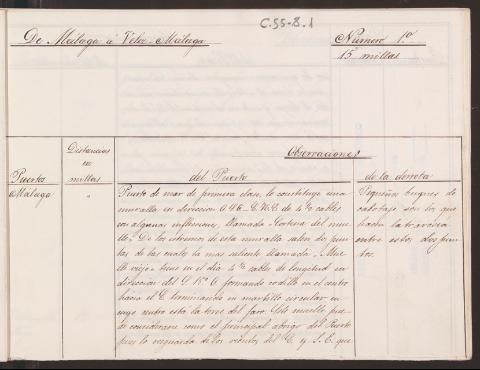 C.55-8.1
De Málaga á Velez-Málaga
Número 1º
15 millas
Observaciones
Puertos
Distancias
en
millas
del Puerto
de la derrota
Málaga
"
Puerto de mar de primera clase, lo constituye una
muralla en direccion O4E. de 4½ cables
con algunas inflecciones, llamada Cortina del mue
lle. De los estremos de esta muralla salen dos pun
tas de las cuales la mas saliente llamada "Mue
lle viejo" tiene en el dia 4½ cables de longitud en
direccion del S. 15º E. formando codillo en el centro
hácia el E. terminando en martillo circular en
cuyo centro esta la torre del faro. Este muelle pue
de considerarse como el principal abrigo del Puerto
pues lo resguarda de los vientos del E. y S.E. que
Pequeños buques de
cabotage son los que
hacen la travesia
entre estos dos pun
tos.